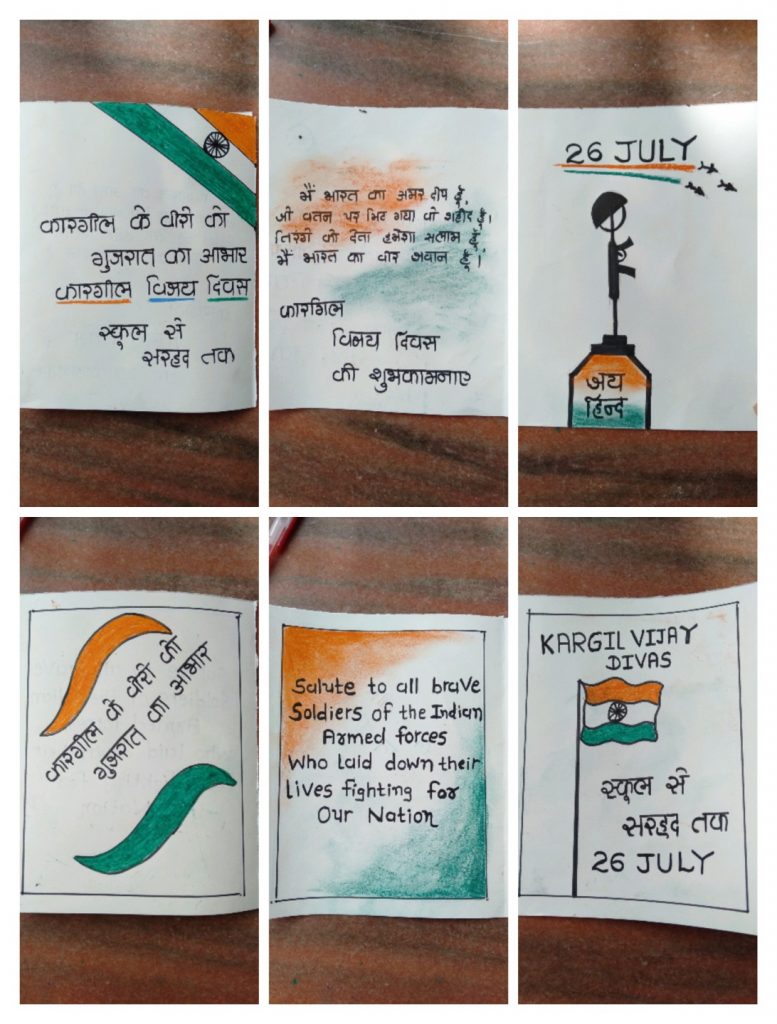 कारगील के वीरो को
गुजरात का आभार
कारगील विजय दिवस
स्कूल से
सरहद तक
मैं भारत का अमर दीप हूँ,
जो वतन पर मिट गया वो शहीद हूँ।
तिरंगे को देता हमेशा सलाम हूँ
मैं भारत का वीर जवान हूँ।
कारगिल
विजय दिवस
की शुभकामनाए
26 JULY
जय
हिन्द
कारगील के वीरो को
गुजरात का आभार
Salute to all brave
Soldiers of the Indian
Armed forces
Who laid down their
lives fighting for
Our Nation
KARGIL VIJAY
DIVAS
स्कूल से
सरहद तक
26 JULY